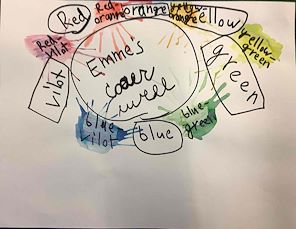 Red
Red orange
orange
yellow orange
yellow
Red-vilot
yellow-green
vilot
green
Emmes
coler
weel
blue vilot
blue
blue-green